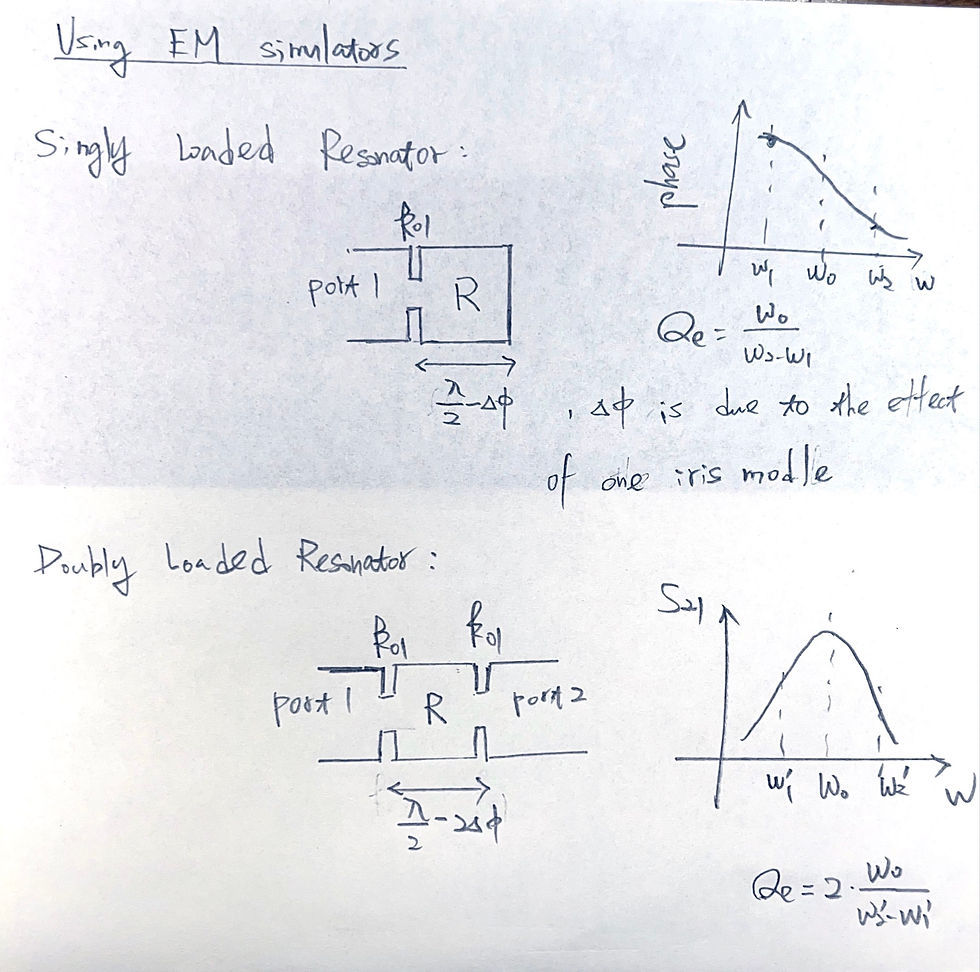 Using EM simulators
Singly Loaded Resonator:
phase
w1 w0 w2 w
k01
port 1 R
λ/2-Δϕ
Qe = w0/(w2-w1)
, Δϕ is due to the effect
of one iris modle
Doubly Loaded Resonator:
k01 k01
port 1 R port 2
λ/2-2Δϕ
S21
w1' w0 w2' w
Qe = 2·w0/(w2'-w1')